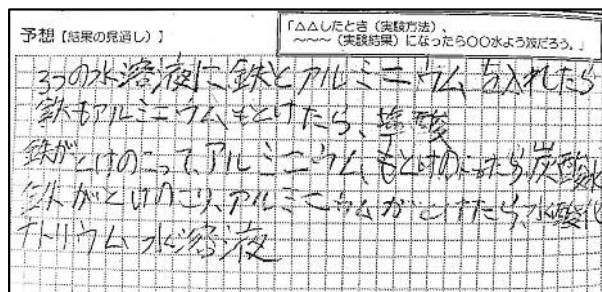 予想【結果の見通し】
「△△したとき（実験方法）、
～～～（実験結果）になったら〇〇水よう液だろう。」
3つの水溶液に、鉄とアルミニウムを入れたら
鉄もアルミニウムもとけたら、塩酸
鉄がとけのこって、アルミニウムもとけのこったら、炭酸水
鉄がとけのこり、アルミニウムがとけたら、水酸化
ナトリウム水溶液